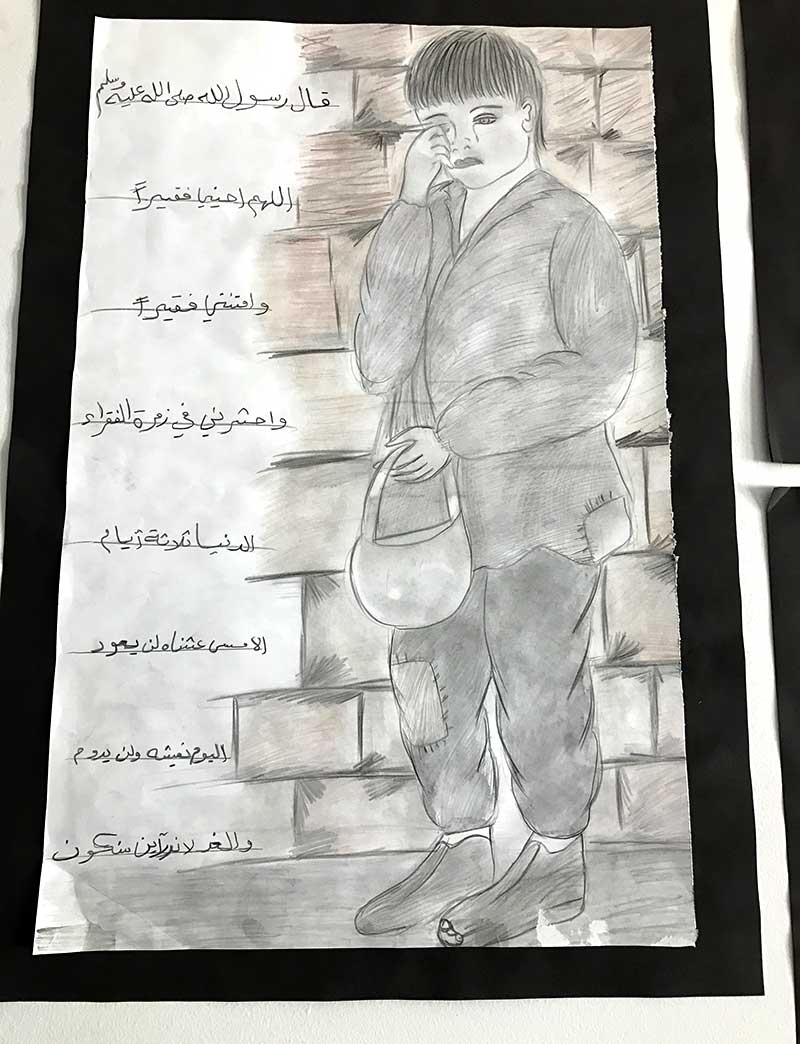 قال رسول الله صلى الله عليه وسلم
اللهم احيني فقيراً
وامتني فقيراً
واحشرني في زمرة الفقراء
الدنيا ثلاثة أيام
الامس عشناه لن يعود
اليوم نعيشه ولن يدوم
والغد لاندر أين سنكون